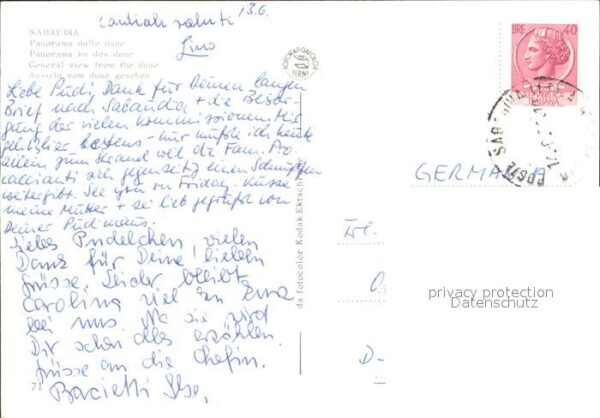 Cordiali saluti 13.6.
Lino
SABAUDIA
Panorama dalle dune
Panorama vu des dune
General view from the dune
Ansicht vom dune gesehen
Liebe Pudi, Dank für Deinen langen
Brief nach Sabaudia + die Besor-
gung der vielen Kommissionen. Mir
geht's hier bestens - nur mußte ich heute
allein zum Strand weil die Fam.
sich gegenseitig einen Schnupfen
weitergibt. See you on Friday. Küsse
meine Mutter + sei lieb gegrüßt von
Deiner Pudimaus.
Liebes Pudelchen, vielen
Dank für Deine lieben
Grüsse. Leider bleibt
Carolina viel zu kurz
bei uns. Na sie wird
Dir schon alles erzählen.
Grüsse an die Chefin.
Bacietti Ilse,
71
FOTORAPIDACOLOR
TERNI
da fotocolor Kodak Ektach
LIRE 40
ITALIANA
POSTE SABAUDIA
GERMANIA
Frl.
D-
privacy protection
Datenschutz